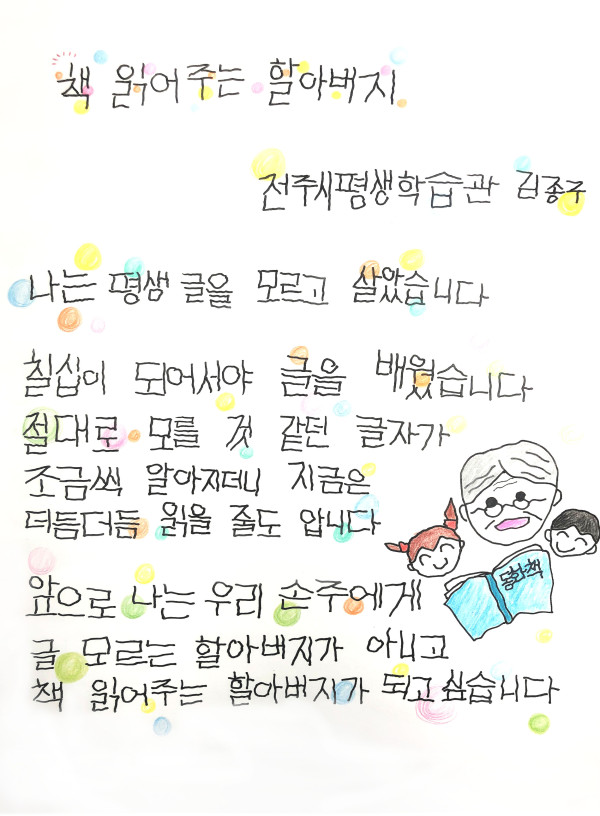 책 읽어주는 할아버지
전주시평생학습관 김종주
나는 평생 글을 모르고 살았습니다
칠십이 되어서야 글을 배웠습니다
절대로 모를 것 같던 글자가
조금씩 알아지더니 지금은
더듬더듬 읽을 줄도 압니다
앞으로 나는 우리 손주에게
글 모르는 할아버지가 아니고
책 읽어주는 할아버지가 되고 싶습니다
동화책